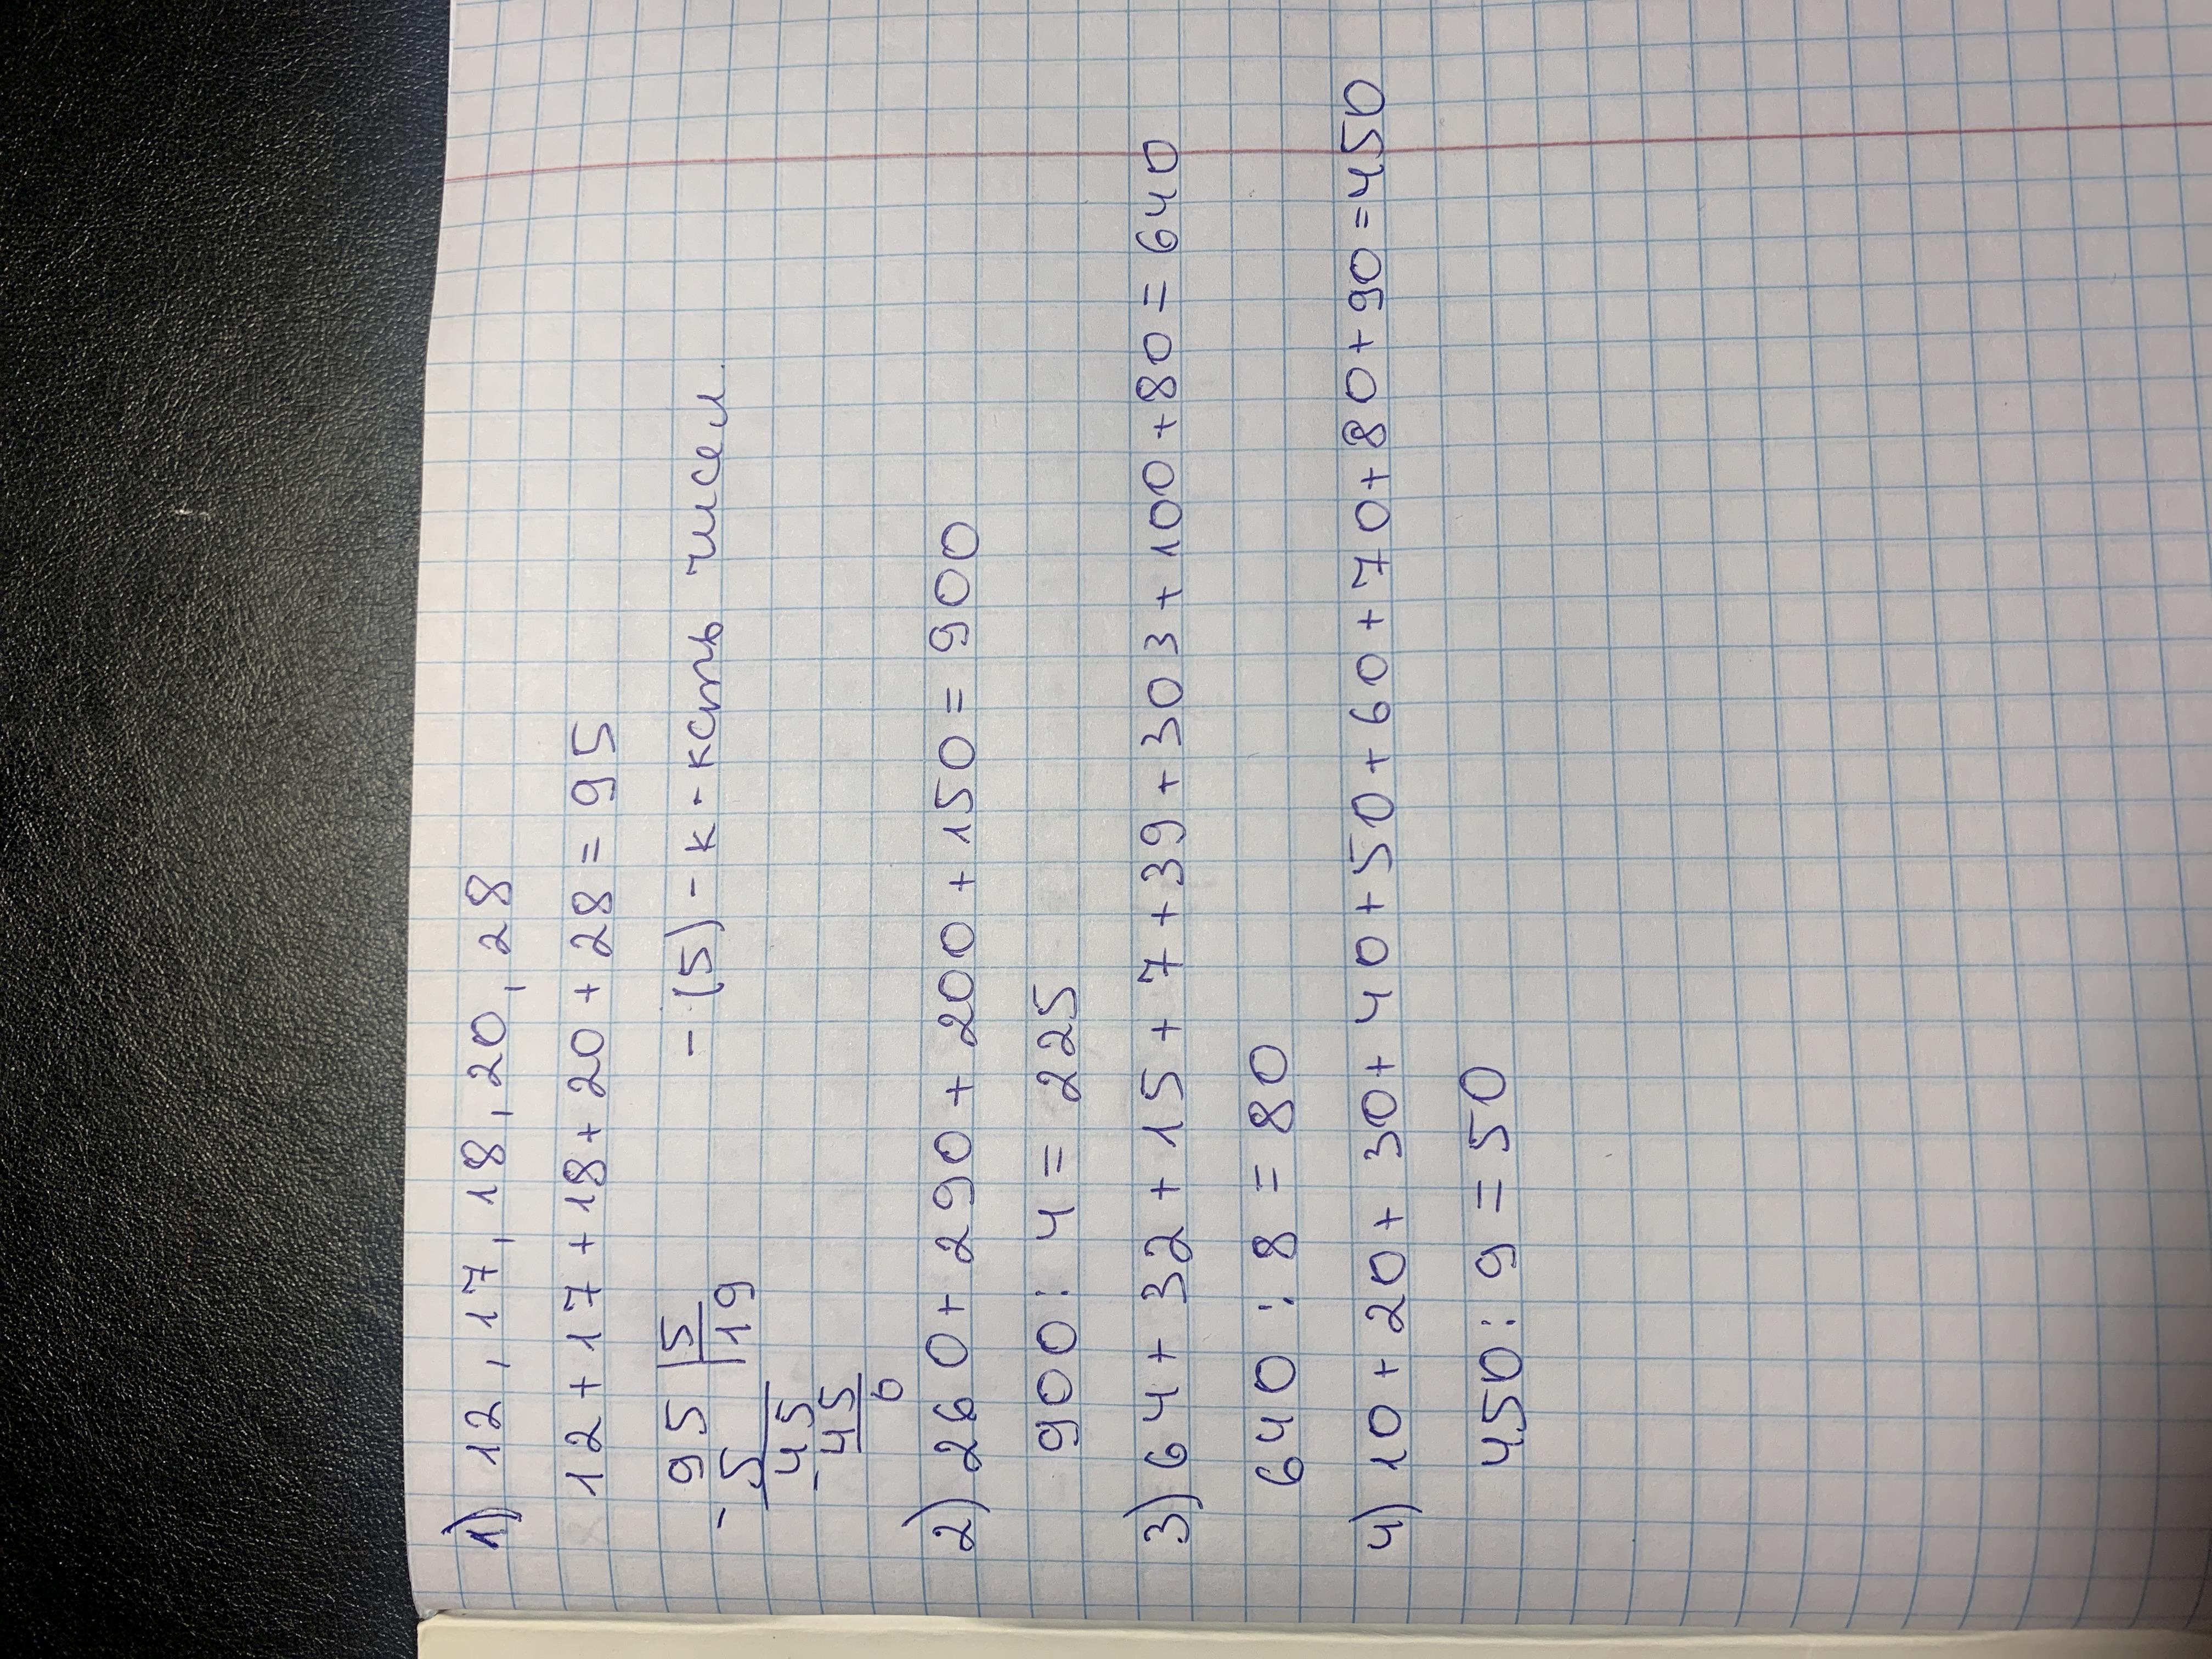 1) 12, 17, 18, 20, 28
12 + 17 + 18 + 20 + 28 = 95
95 | 5 - (5) - к-ксть чисел.
- 5 | 19
45
- 45
0
2) 260 + 290 + 200 + 150 = 900
900 : 4 = 225
3) 64 + 32 + 15 + 7 + 39 + 303 + 100 + 80 = 640
640 : 8 = 80
4) 10 + 20 + 30 + 40 + 50 + 60 + 70 + 80 + 90 = 450
450 : 9 = 50